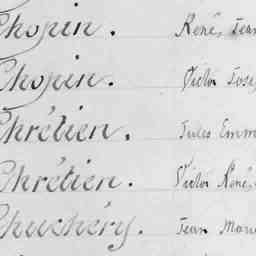 Chopin. René, Jean
Chopin. Victor Jose
Chrétien. Jules Emm
Chrétien. Victor René,
Chuchéry. Jean Mari